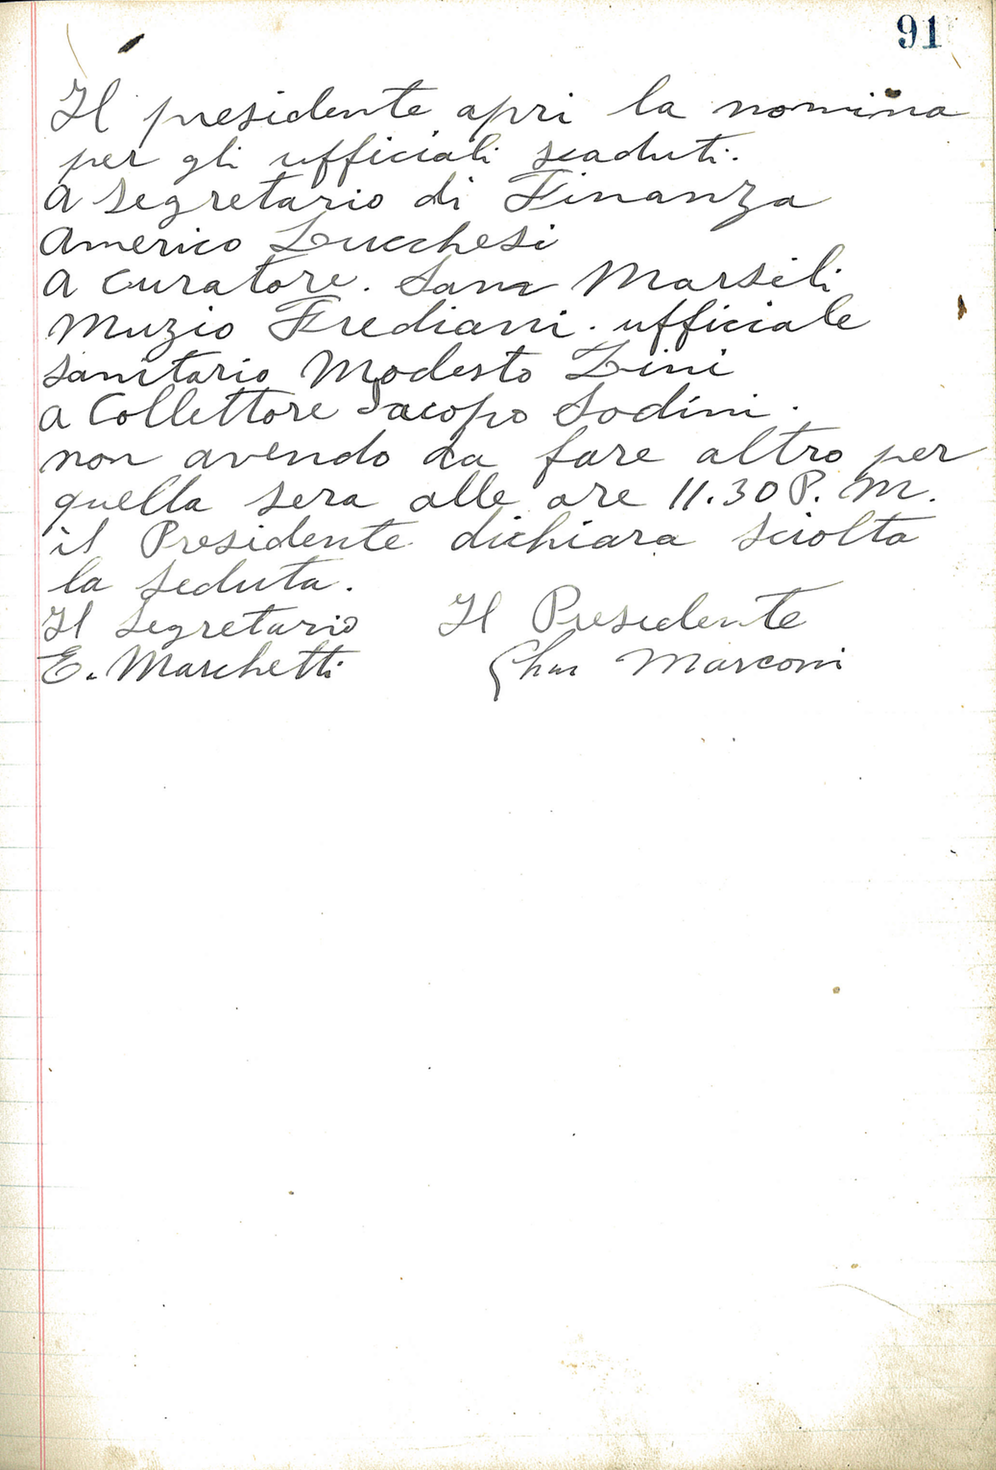 91
Il presidente apri la nomina
per gli ufficiali scaduti.
a segretario di Finanza
Americo Lucchesi
a curatore. Sam Marsili
Muzio Frediani. ufficiale
sanitario Modesto Lini
a Collettore Iacopo Sodini.
non avendo da fare altro per
quella sera alle ore 11.30 P. M.
il Presidente dichiara sciolta
la seduta.
Il Segretario Il Presidente
E. Marchetti Marconi